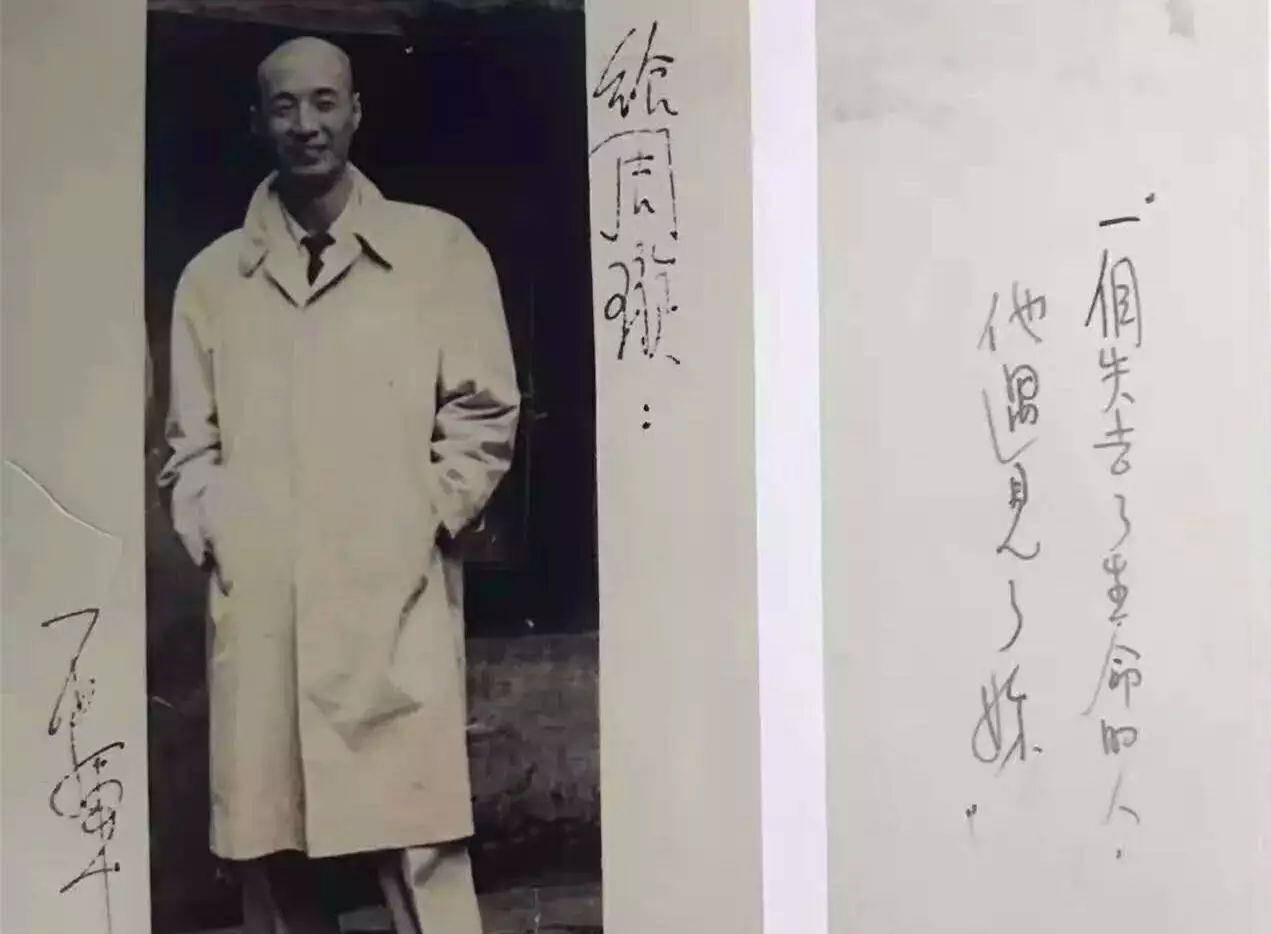 給周璇：
石揮
“一個失去了生命的人.
他遇見了妳”